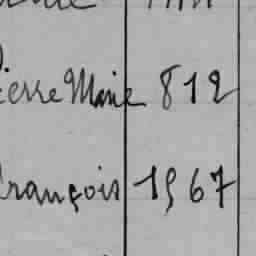 Pierre Marie 812
François 1967